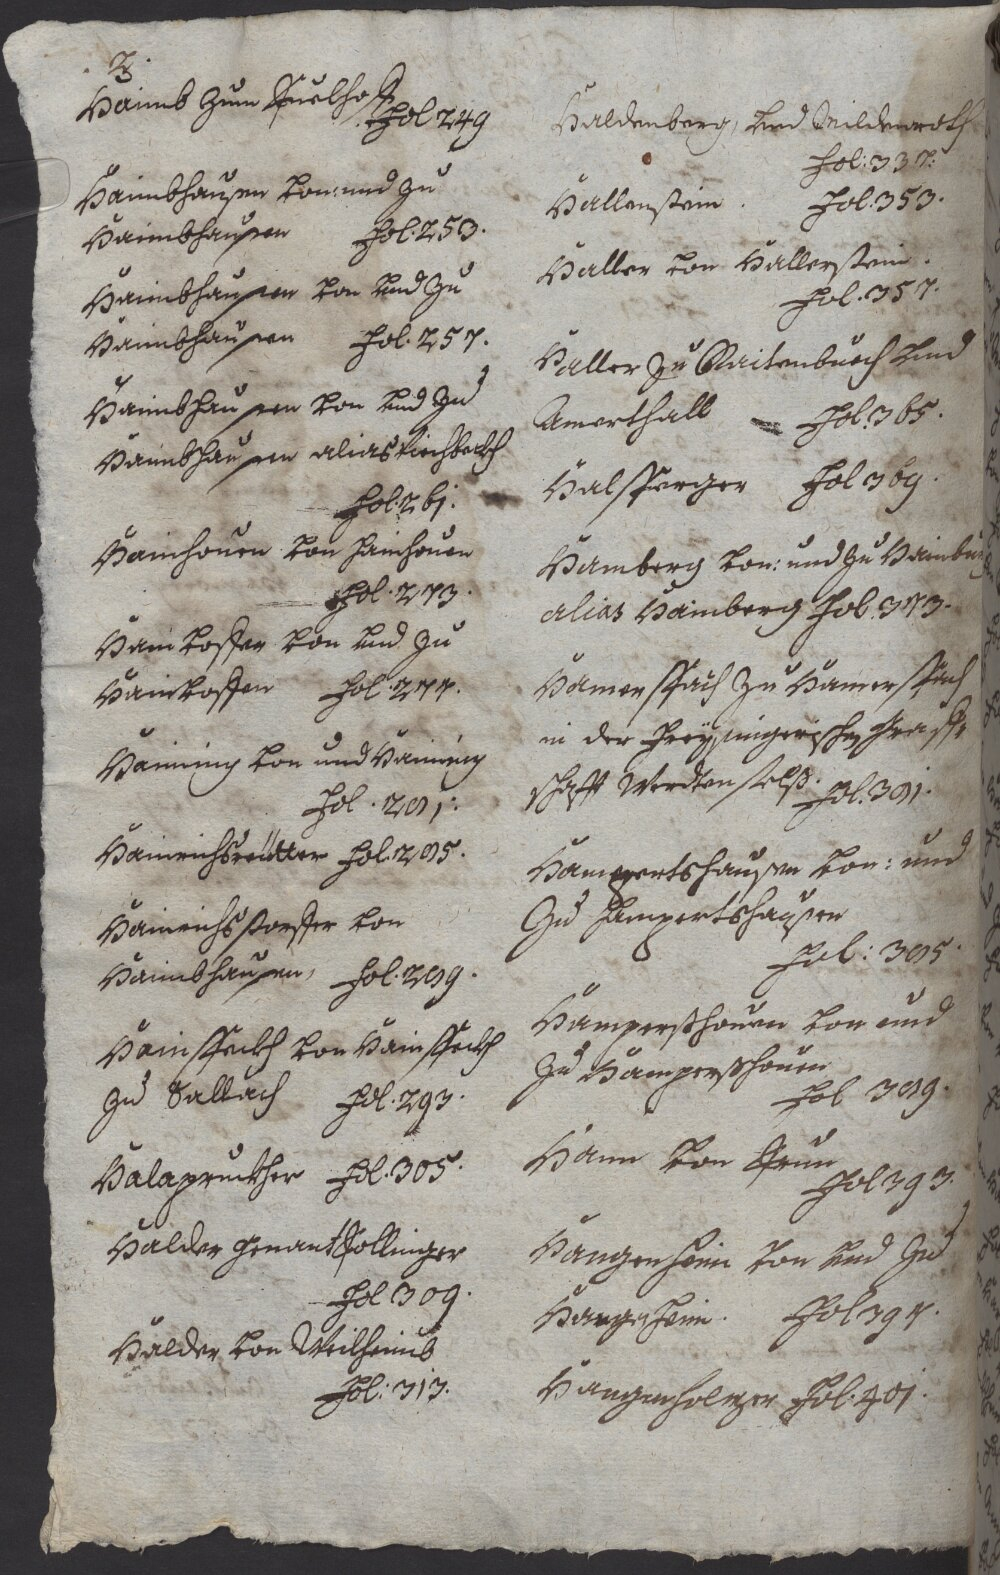 2.
Haimb zum
fol 249
Haimbhausen von: und zu
Haimbhausen fol. 253.
Haimbhausen von und zu
Haimbhausen fol. 257.
Haimbhausen von und zu
Haimbhausen alias
fol. 261.
Hainhouen von Hainhouen
fol. 273.
von und zu
fol. 277.
Haining von und Haining
fol. 281.
Hainrichsreütter fol. 285.
von
Haimbhausen, fol. 289.
von
zu Sallach fol. 293.
Halapruckher fol. 305.
Halder genant
fol 309.
Halder von Weilheimb
fol: 313.
Haldenberg, und Wildenroth
fol: 337.
Hallenstein. fol. 353.
Haller von Hallerstein.
fol. 357.
Haller zu Raitenbuech und
Amerthall fol. 365.
Halsperger fol 369.
Hamberg von: und zu
alias Haimberg fol. 373.
zu
in der Freysingerischen Graff-
schafft Werdtenfelß. fol. 381.
Hampertshausen von: und
Zu Hampertshausen
fol: 385.
Hampershouen von und
Zu Hampershouen
fol 389.
Hann von
fol 393.
Hangenheim von und Zu
Hangenheim. fol 397.
Hangenholzer fol. 401.